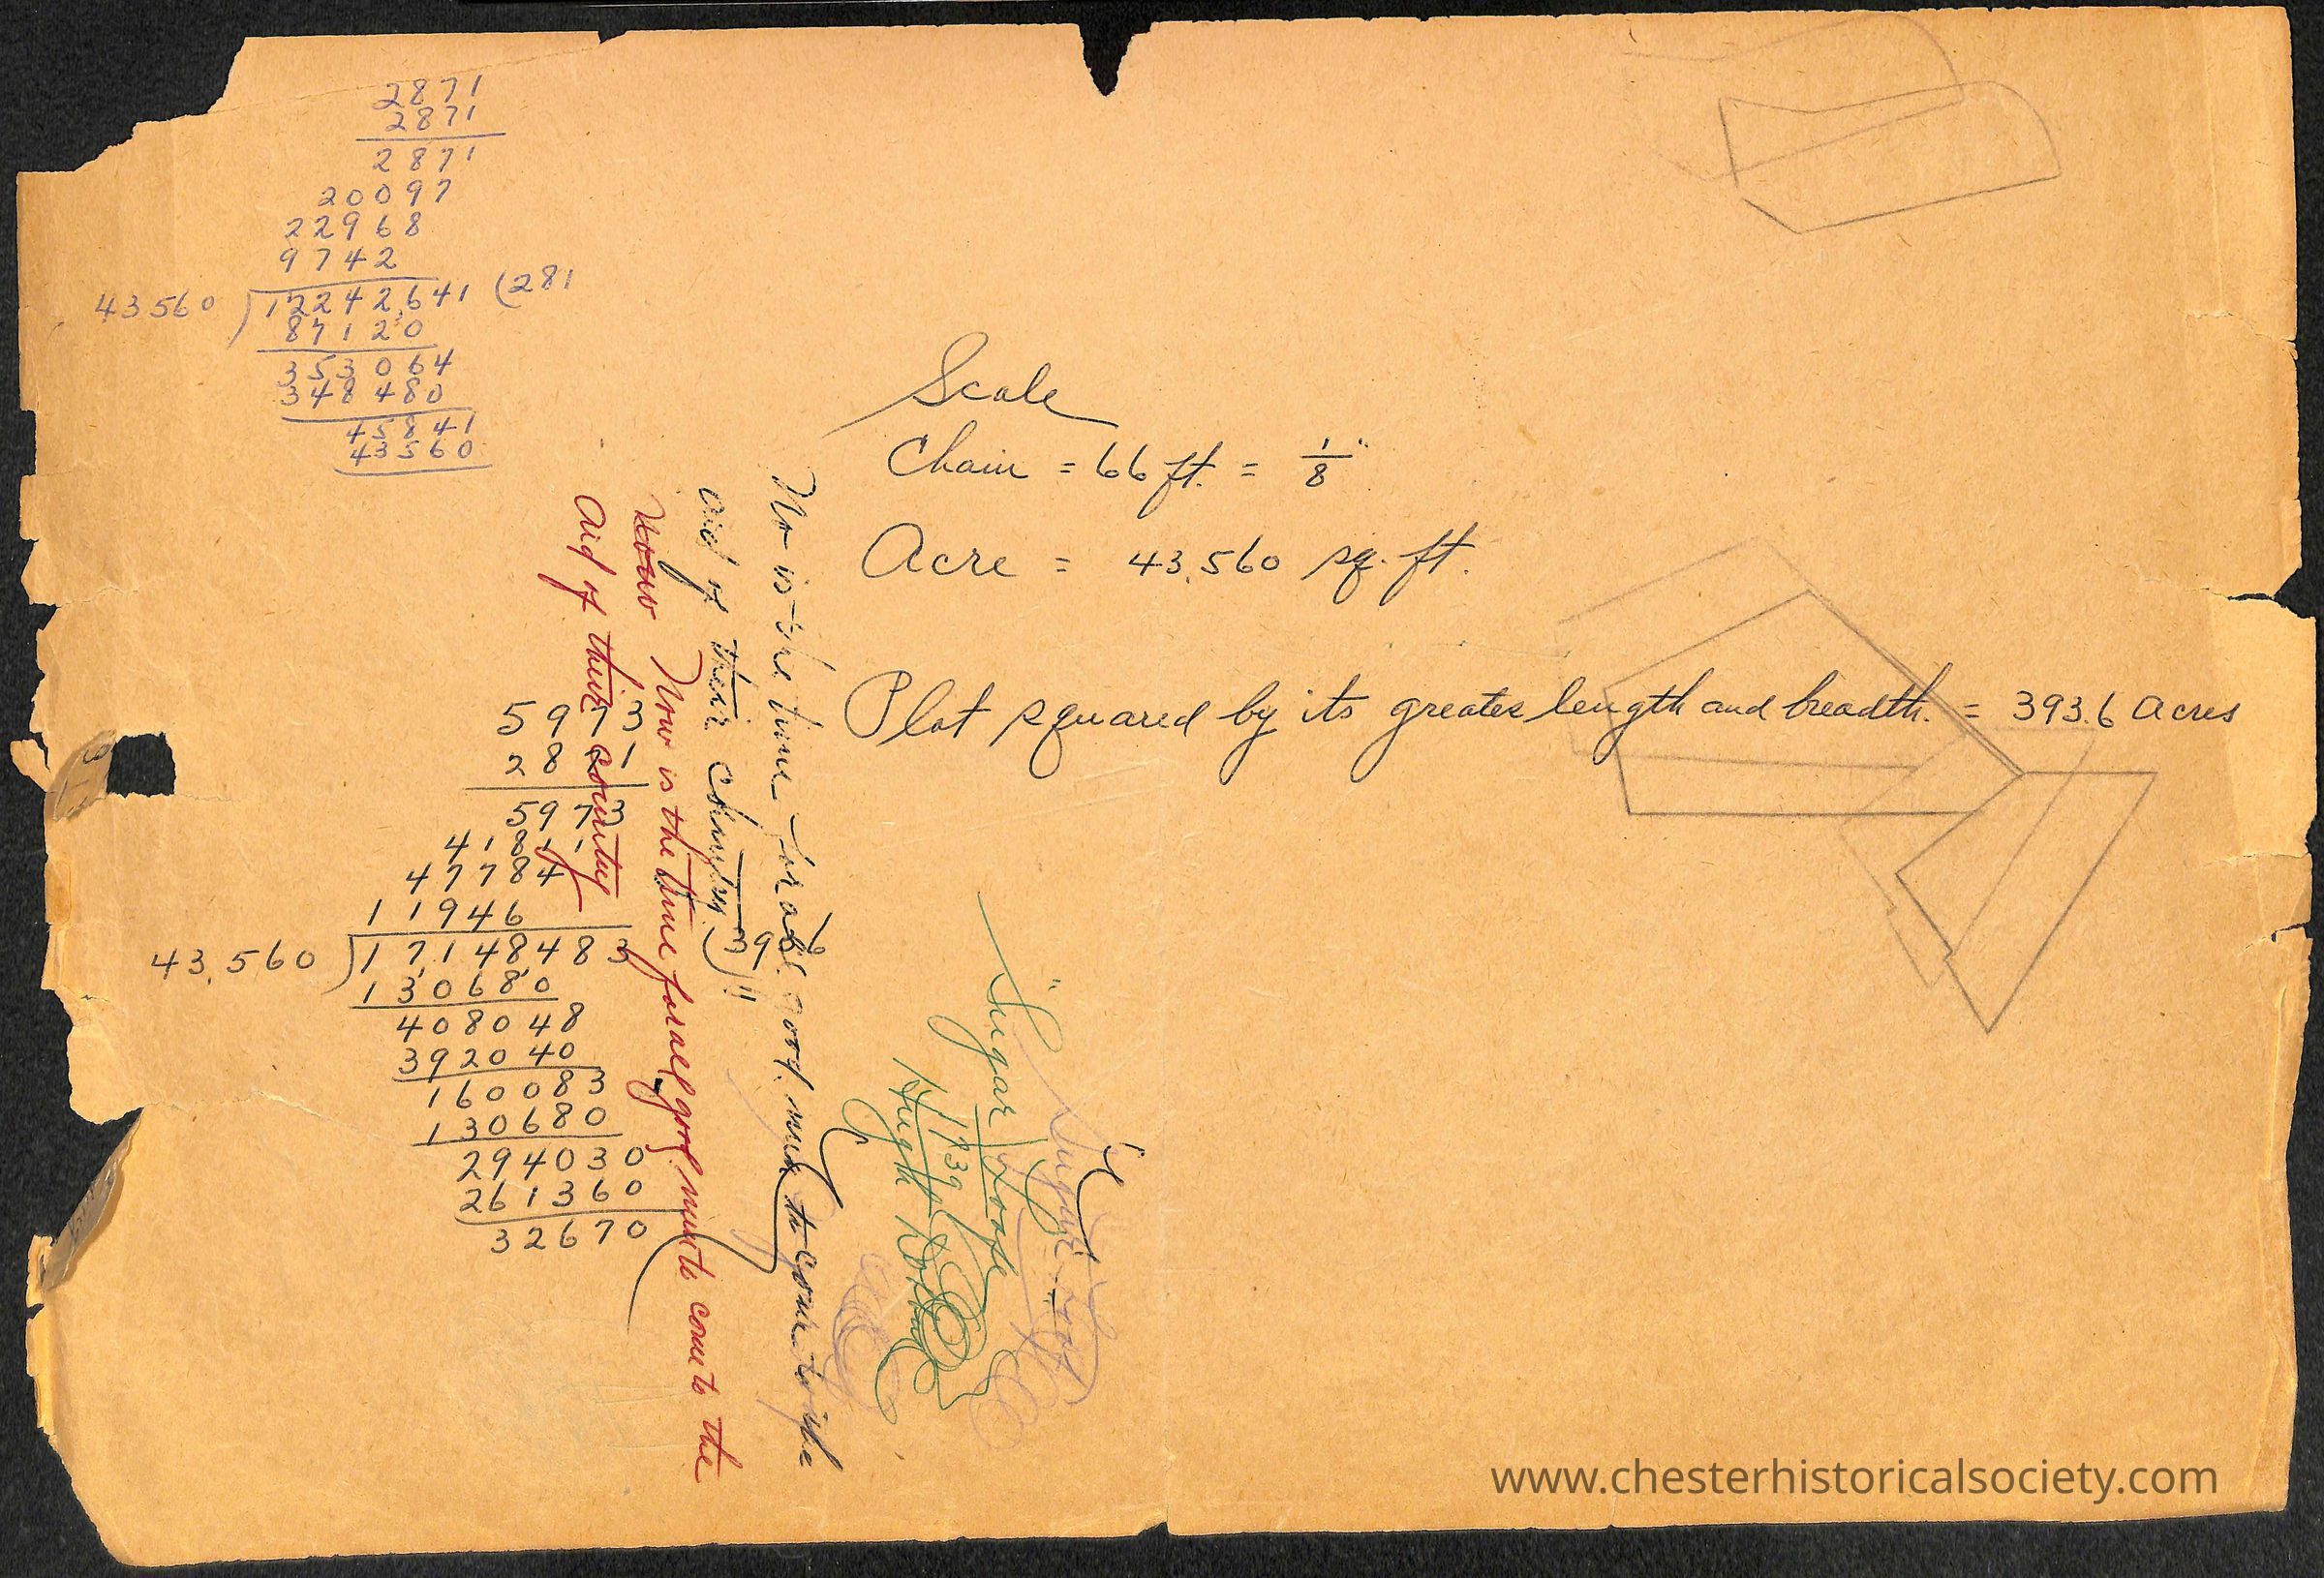 2871
2871
2871
20097
22968
9742
43560 ) 12242,641 ( 281
87120
353064
348480
45841
43560
Scale
Chain = 66 ft. = 1/8"
Acre = 43,560 sq. ft.
Plot squared by its greates length and breadth. = 393.6 Acres
5973
2871
5973
41811
47784
11946
43,560 ) 17148483 ( 3936
130680
408048
392040
160083
130680
294030
261360
32670
No is the time for all good men to come to the
aid of their
Now is the time for all good men to come to the
Aid of their country
"Sugar Loaf
1739
Hugh
Sugar Loaf
www.chesterhistoricalsociety.com